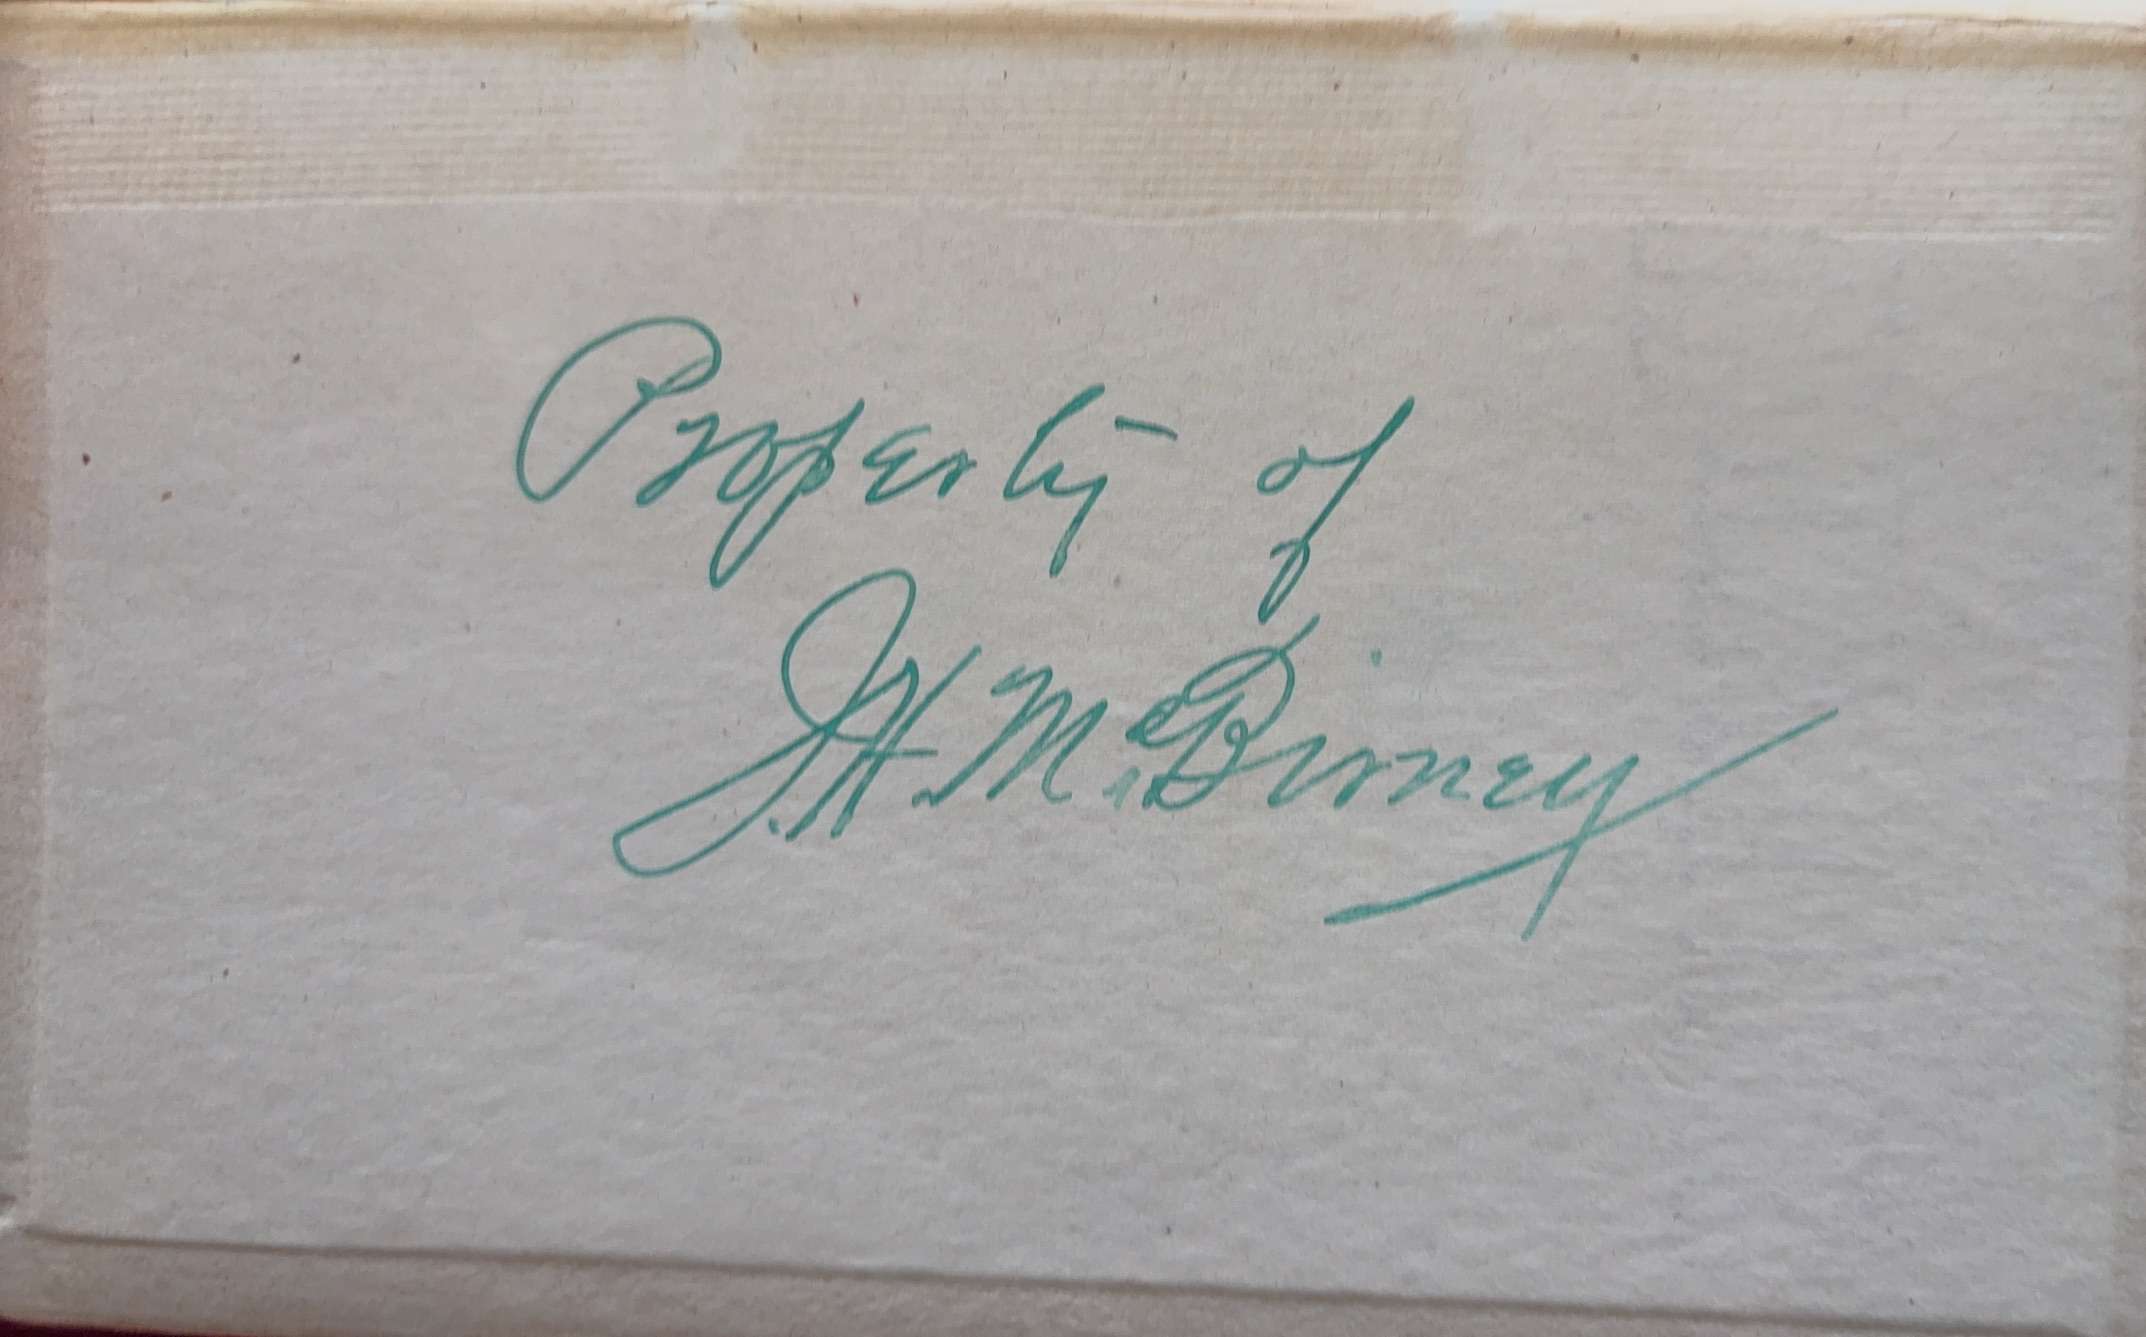 Property of
J.H. McBirney